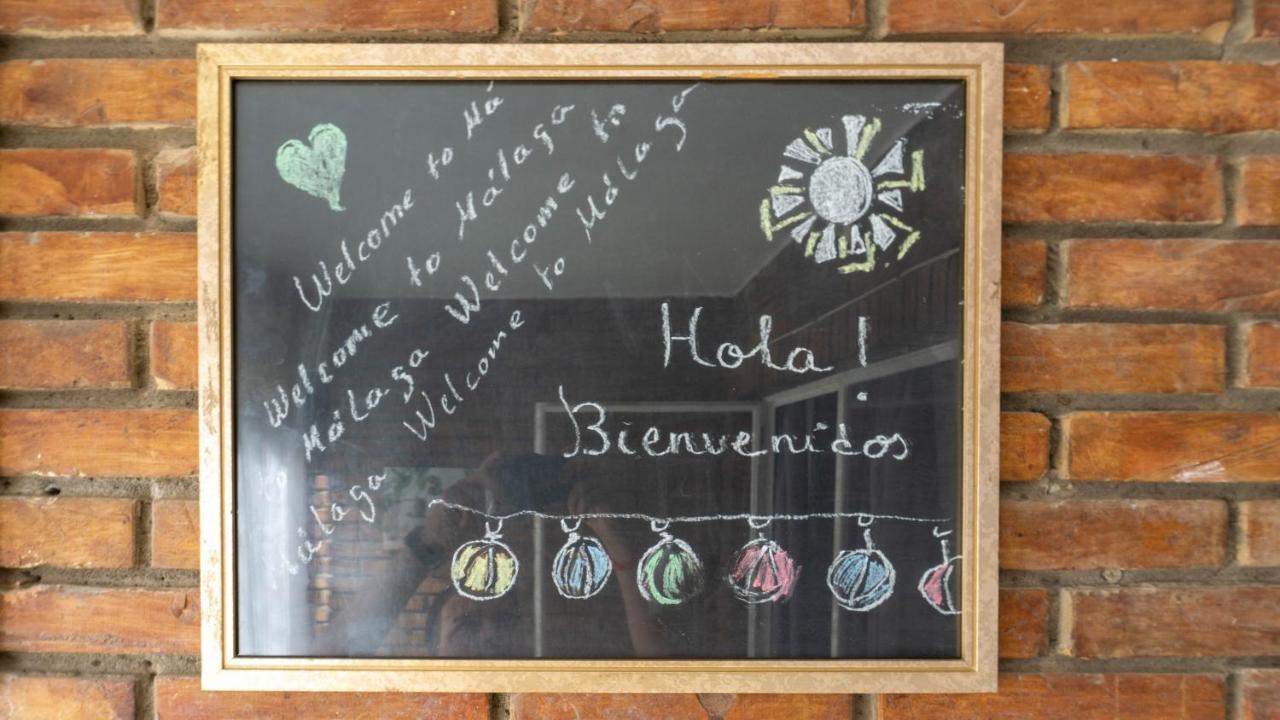 Welcome to Má
Welcome to Málaga
to Málaga Welcome to
Málaga Welcome to Málaga
Hola!
Bienvenidos